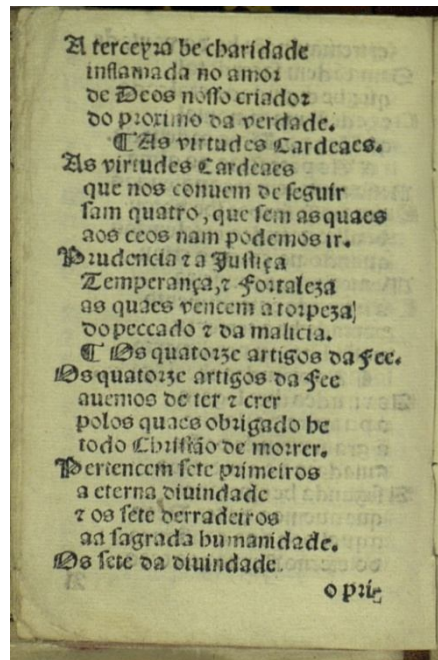 A terceyra he charidade
inflamada no amor
de Deos nosso criador
do proximo da verdade.
¶ As virtudes Cardeaes.
As virtudes Cardeaes
que nos conuem de seguir
sam quatro, que sem as quaes
aos ceos nam podemos ir.
Prudencia ⁊ a Justiça
Temperança, ⁊ Fortaleza
as quaes vencem a torpeza
do peccado ⁊ da malicia.
¶ Os quatorze artigos da Fee.
Os quatorze artigos da Fee
auemos de ter ⁊ crer
polos quaes obrigado he
todo Christão de morrer.
Pertencem sete primeiros
a eterna diuindade
⁊ os sete derradeiros
aa sagrada humanidade.
Os sete da diuindade
o pri-